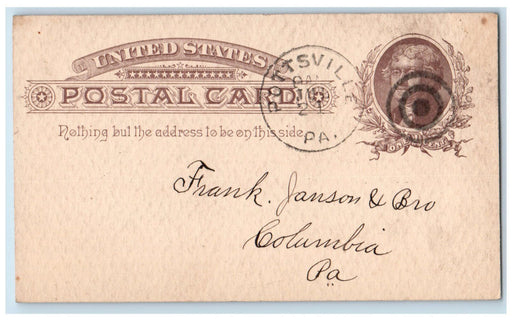 UNITED STATES
POSTAL CARD.
Nothing but the address to be on this side.
POTTSVILLE
PA.
Frank. Janson & Bro
Columbia
Pa